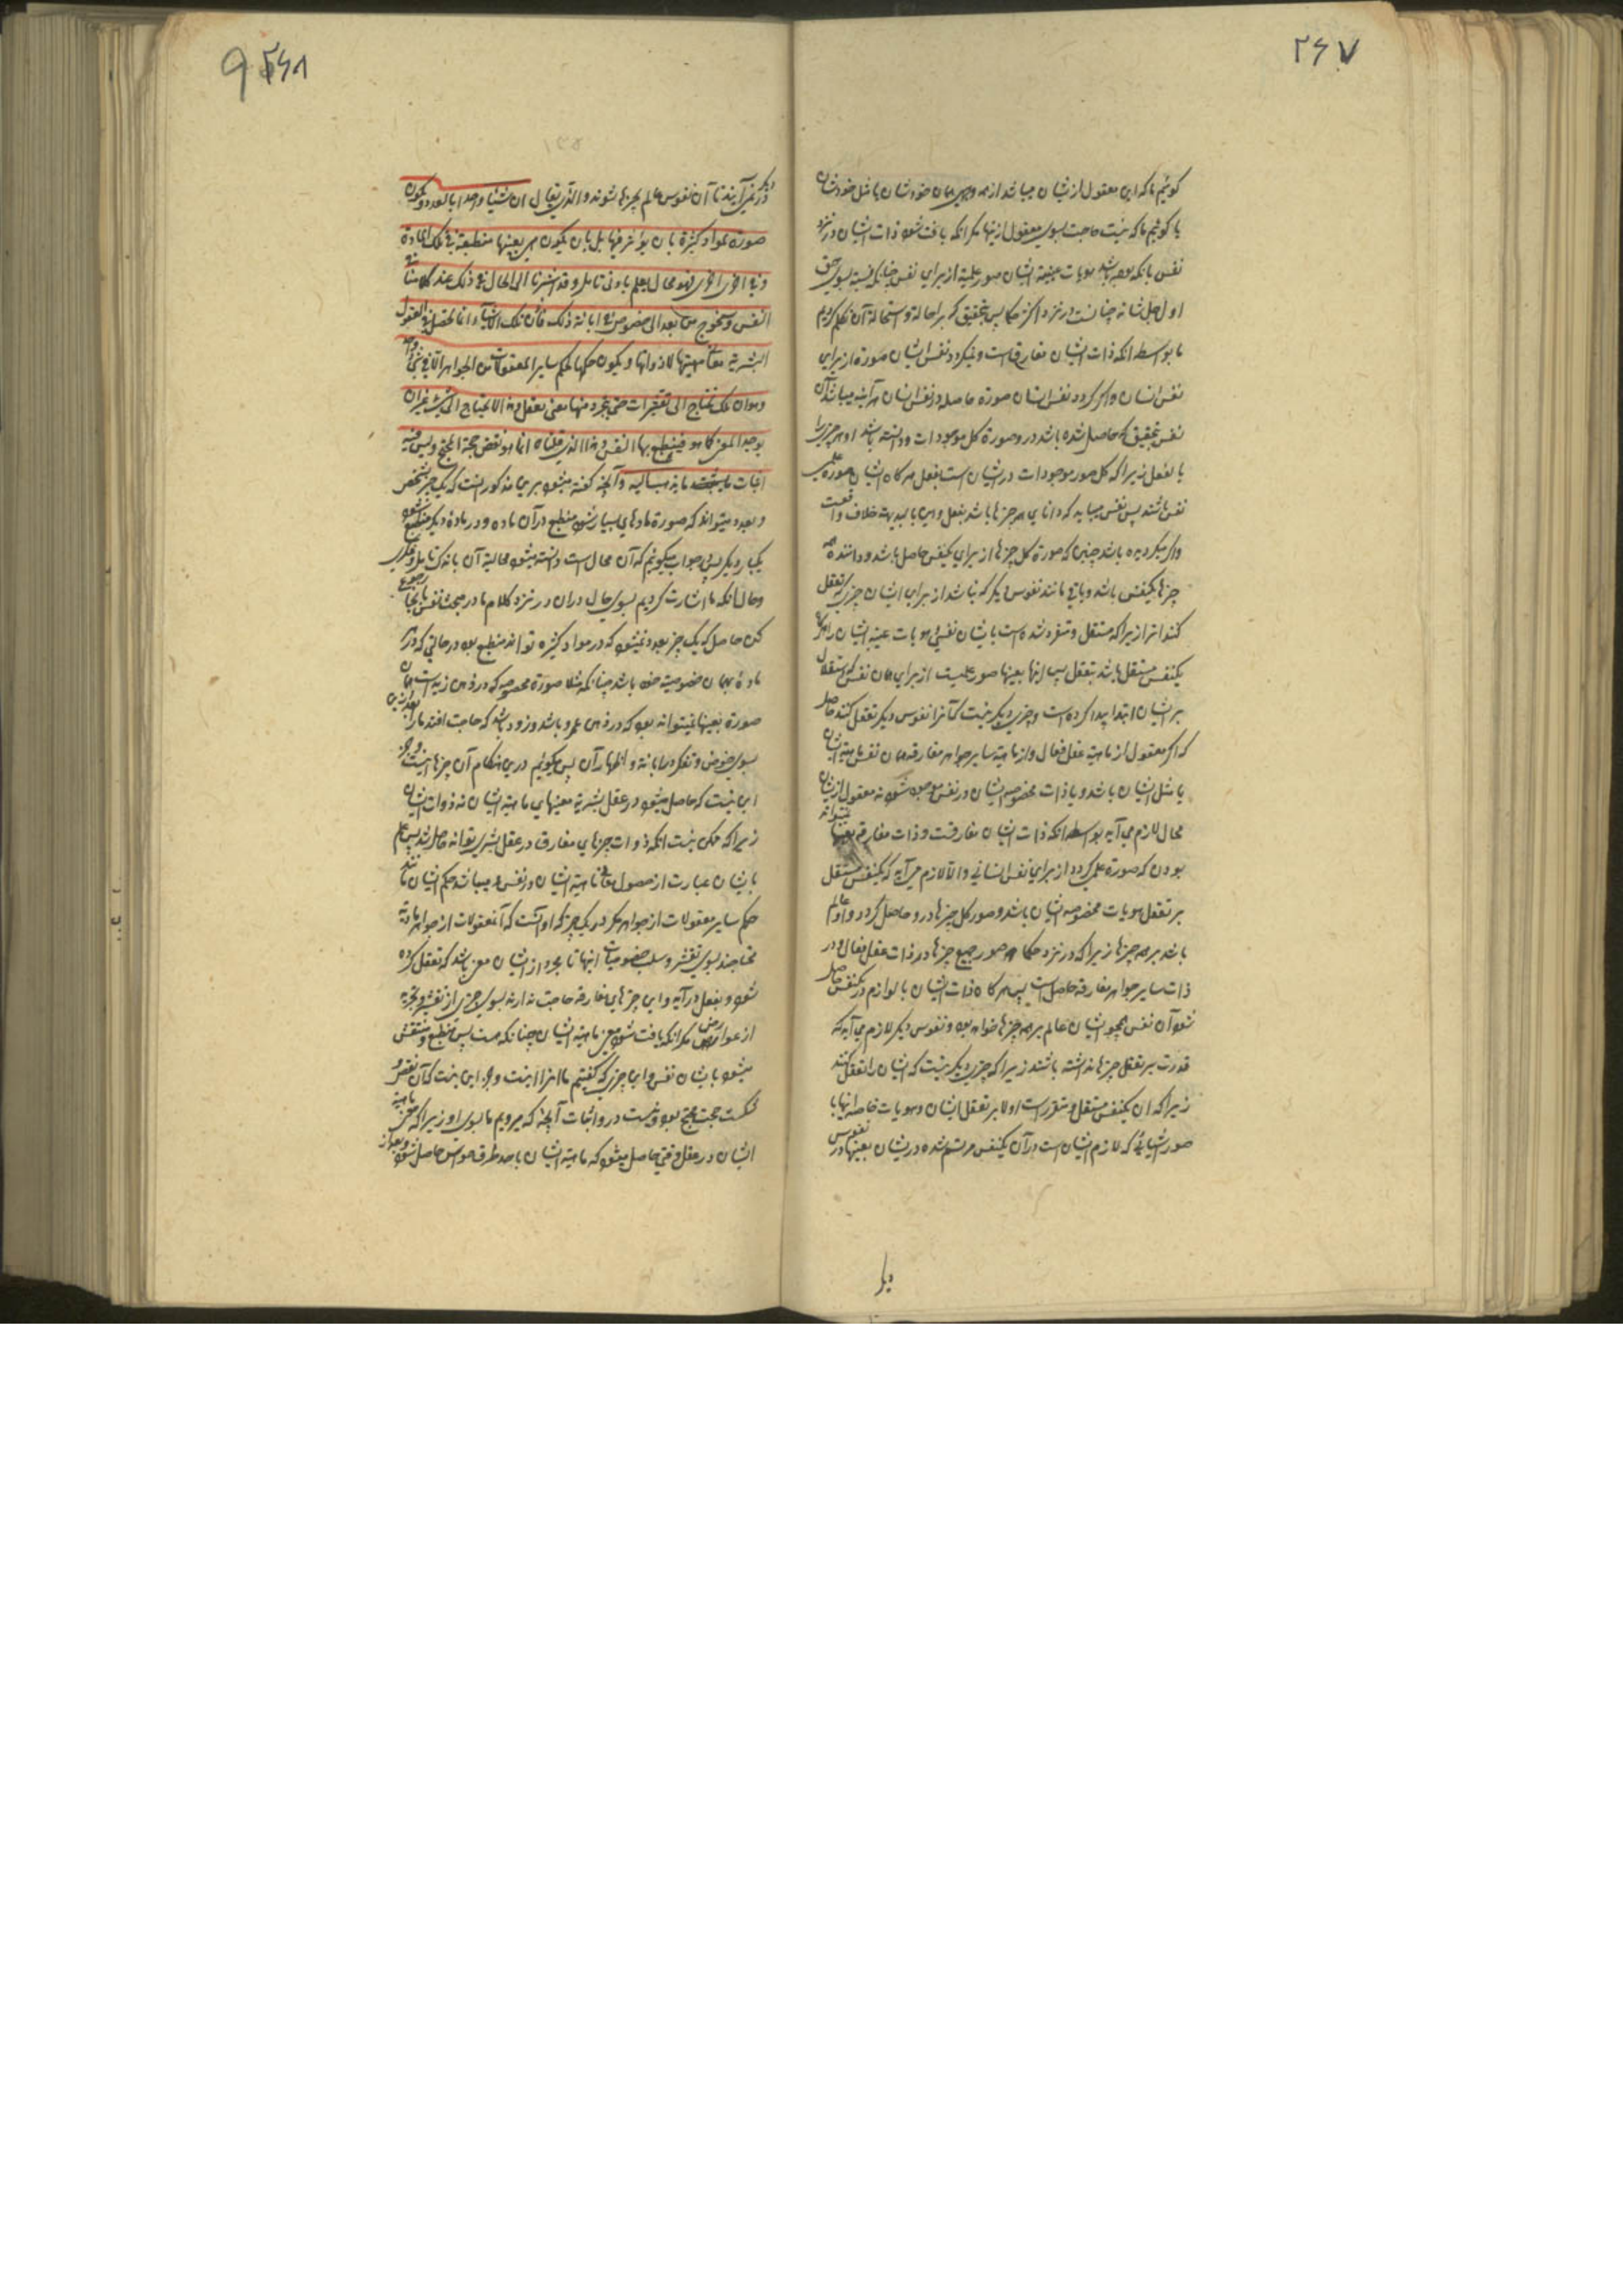 ۲۶۷
کوئیم ما که این معقول ازیشان میباشد از همه وجهی همان خودشان یا مثل خودشان
یا کوئیم ما که نیست حاجت بسوی معقول ازینها مکر انکه یافت شود ذات ایشان در نزد
نفس بانکه بوده باشد هویات عینیه ایشان صور علمیة از برای نفس چنانکه نسبت بسوی حق
اول جل شانه چنانست در نزد اکثر حکما پس بتحقیق که بر احاله و استحاله آن تکلم کردیم
ما بواسطه انکه ذات ایشان مفارق است و نمیکردد نفس ایشان صورة از برای
نفس انسان و اکر کردد نفس ایشان صورة حاصله در نفس انسان هر آینه میباشد آن
نفس بتحقیق که حاصل شده باشد در و صورة کل موجودات و دانسته باشد او هر چیز را
بالفعل زیرا که کل صور موجودات در ایشان است بفعل هر کاه ایشان صورة علمی
نفس باشند پس نفس میباید که دانای هر چیزها باشد بفعل و این بالبدیهه خلاف واقعست
و اکر میکردیده باشد چنین که صورة کل چیزها از برای یکنفس حاصل باشد و دانندهٔ همه
چیزها یکنفس باشد و باقی مانند نفوس دیکر که نباشد از برای ایشان چیزی که تعقل
کنند انرا زیرا که مستقل و متفرد شده است بایشان نفسی هویات عینیه ایشان را هرکاه
یکنفس مستقل باشد بتعقل پس اینها بعینها صور علمیست از برای همان نفس که مستقل
بر ایشان ابتدا پیدا کرده است و چیزی دیکر نیست که آنرا نفوس دیکر تعقل کنند حاصل
که اکر معقول از ماهیة عقل فعال و از ماهیة سایر جواهر مفارقه همان نفس ماهیة ایشان
یا مثل ایشان باشد و یا ذات مخصوصه ایشان در نفس موجود شود نه معقول ازیشان
محال لازم می آید بواسطه انکه ذات ایشان مفارقست و ذات مفارقه بعینها نمیتواند
بودن که صورة علمی کردد از برای نفس انسانی و الا لازم می آید که یکنفس مستقل
بر تعقل هویات مخصوصه ایشان باشد و صور کل چیزها در و حاصل کردد و او عالم
باشد بر همه چیزها زیرا که در نزد حکما همه صور جمیع چیزها در ذات عقل فعال و در
ذات سایر جواهر مفارقه حاصل است پس هر کاه ذات ایشان بالوازم در یکنفس حاصل
شود آن نفس همچو ایشان عالم بر همه چیزها خواهد بود و نفوس دیکر لازم می آید که
قدرت بر تعقل چیزها نداشته باشند زیرا که چیزی دیکر نیست که ایشان را تعقل کنند
زیرا که ان یکنفس مستقل و متفرد است اولا بر تعقل ایشان و هویات خاصه اینها با
صور اشیائی که لازم ایشان است در آن یکنفس مرتسم شده در یشان بعینها در نفوس
دیکر
۲۶۸
دیکر نمی آیند تا آن نفوس عالم بچیزها شوند والذی یقال ان شیئا واحدا بالعدد یکون
صورة لمواد کثیرة لا بان یؤثر فیها بل بان یکون هی بعینها منطبعة فی تلک المادة
وفی اخری واخری فهو محال یعلم بادنی تامل وقد اشرنا الی الحال فی ذلک عند کلامنا فی
النفس وسنخرج من بعد الی خوض فی ابانة ذلک فاذن تلک الاشیاء انما تحصل فی العقول
البشریة معانی ماهیتها لا ذواتها ویکون حکمها کحکم سایر المعقولات من الجواهر الا فی شیء واحد
وهو ان تلک تحتاج الی تقشیرات حتی یتجرد منها معنی یعقل وهذا لا یحتاج الی شیء غیر ان
یوجد المعنی کما هو فینطبع بها النفس وهذا الذی قلناه انما هو نقض حجة المحتج ولیس فیه
اثبات ما یذهب الیه وآنچه کفته میشود برین مذکور اینست که یک چیز شخص
و بعدد میتواند که صورة مادهای بسیار شود منطبع در آن ماده و در مادهٔ دیکر منطبع شود
یکبار دیکر پس جواب میکوئیم که آن محال است و دانسته میشود محالیة آن باندک تامل و فکری
و حال آنکه ما اشارت کردیم بسوی حال در ان در نزد کلام ما در مبحث نفس بانجا رجوع
کن حاصل که یک چیز بعدد نمیشود که در مواد کثیره تواند منطبع بود در حالتی که در هر
مادهٔ همان خصوصیت خود باشد چنانکه مثلا صورة مخصوصه که در ذهن زید است همان
صورة بعینها نمیتواند بود که در ذهن عمرو باشد و زود باشد که حاجت افتد ما را بعد ازین
بسوی خوض و تفکر در ابانة و اظهار آن پس میکوئیم درین هنکام آن چیزها اینست و جز
این نیست که حاصل میشود در عقل بشریة معنیهای ماهیة ایشان نه ذوات ایشان
زیرا که ممکن نیست انکه ذوات چیزهای مفارق در عقل بشری تواند حاصل شد پس علم
بایشان عبارت از حصول معانی ماهیة ایشان در نفس و میباشد حکم ایشان مانند
حکم سایر معقولات از جواهر مکر در یک چیز که او آنست که آن معقولات از جواهر مادیة
محتاجند بسوی تقشیر و سلب خصوصیات اینها تا مجرد از ایشان معنی باشد که تعقل کرده
شود و بفعل در آید و این چیزهای مفارقه حاجت ندارند بسوی چیزی از تقشیر و تجرید
از عوارض مکر انکه یافت شود معنی ماهیة ایشان چنانکه هست پس منطبع و منتقش
میشود بایشان نفس و این چیزی که کفتیم ما انرا اینست و جز این نیست که آن نقض و
شکست حجت محتج بود و نیست در و اثبات آنچه که میرویم ما بسوی او زیرا که معنی ماهیة
ایشان در عقل وقتی حاصل میشود که ماهیة ایشان باحد طرق حواس حاصل شود و بعد از